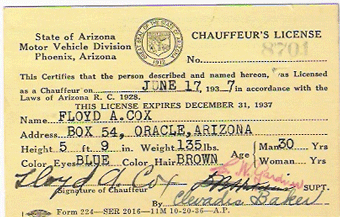 State of Arizona
Motor Vehicle Division
Phoenix, Arizona
CHAUFFEUR'S LICENSE
No. 8701
This Certifies that the person described and named hereon, is Licensed
as a Chauffeur on JUNE 17 1937 in accordance with the
Laws of Arizona R. C. 1928.
THIS LICENSE EXPIRES DECEMBER 31, 1937
Name FLOYD A.COX
Address BOX 54, ORACLE,ARIZONA
Height 5 ft 9 in. Weight 135 lbs. Age Man 30 Yrs
Color Eyes BLUE Color Hair BROWN Woman Yrs.
Floyd A. Cox SUPT.
Signature of Chauffeur By
Form 224—SER 2016—11M 10-20-36—A.P.